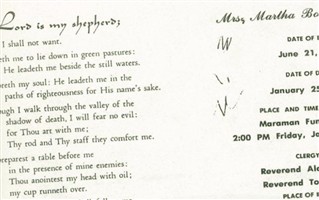 Lord is my shepherd;
I shall not want.
eth me to lie down in green pastures:
He leadeth me beside the still waters.
oreth my soul: He leadeth me in the
paths of righteousness for His name's sake.
ough I walk through the valley of the
shadow of death, I will fear no evil:
for Thou art with me;
Thy rod and Thy staff they comfort me.
preparest a rable before me
in the presence of mine enemies:
Thou anointest my head with oil;
my cup runneth over.
Mrs. Martha Bo
DATE OF
June 21,
DATE OF D
January 25
PLACE AND TIME
Maraman Fun
2:00 PM Friday, Ja
CLERGY
Reverend Ale
Reverend To
PLACE OF